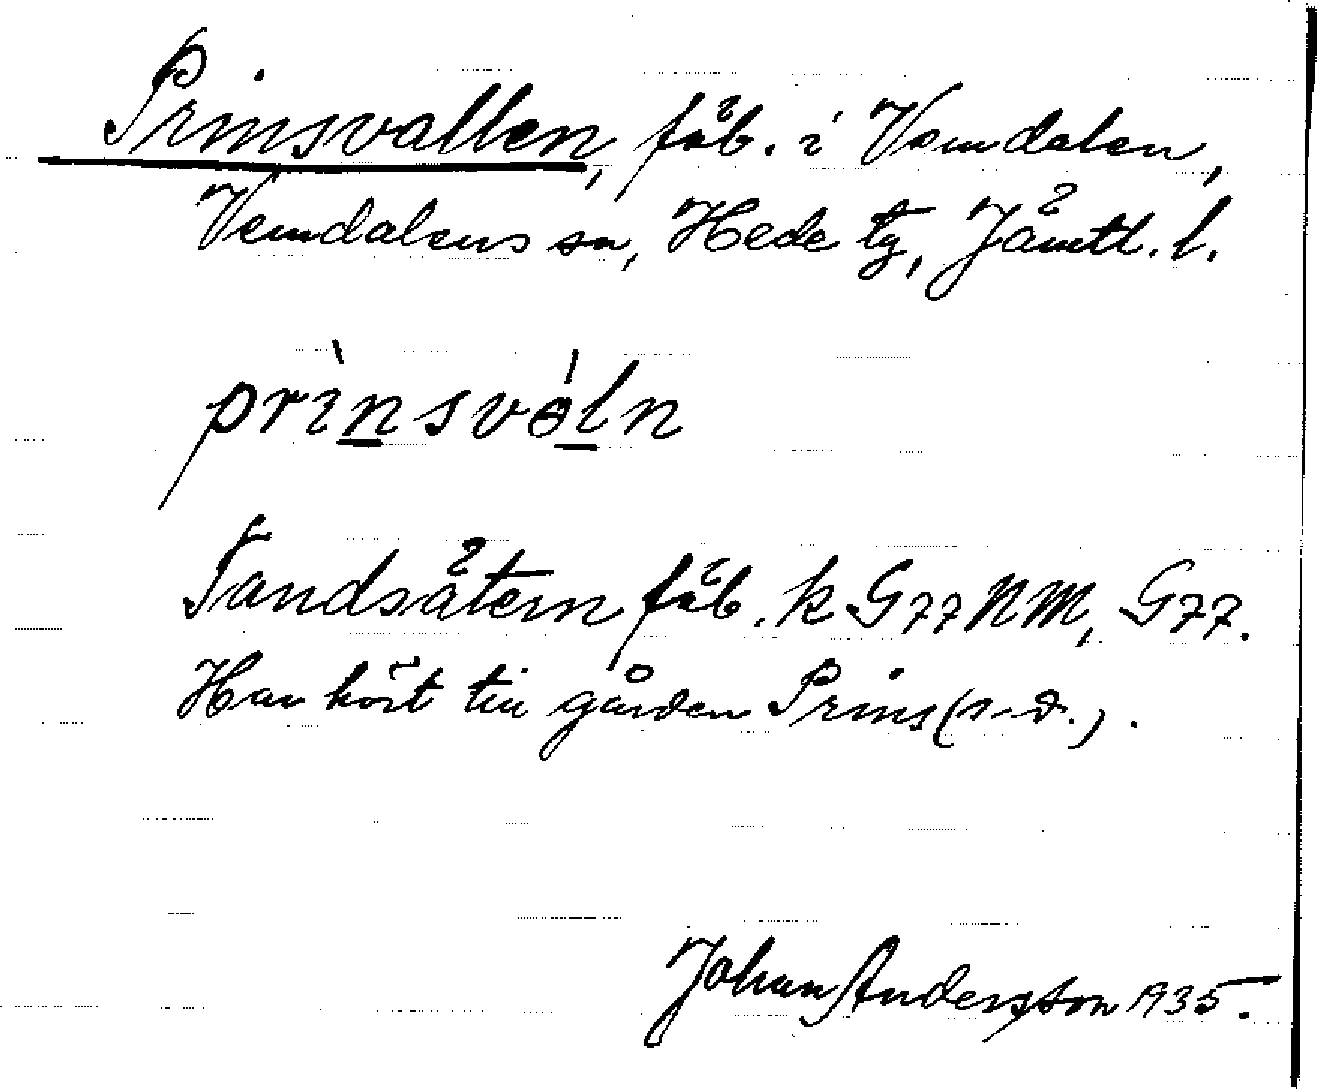 Prinsvallen, fäb. i Vemdalen,
Vemdalens sn, Hede tg, Jämtl. l.
prìnsvɵ́ln
Sandsätern fäb. k G77NM, G77.
Har hört till gården Prins (s.d.).
Johan Andersson 1935.